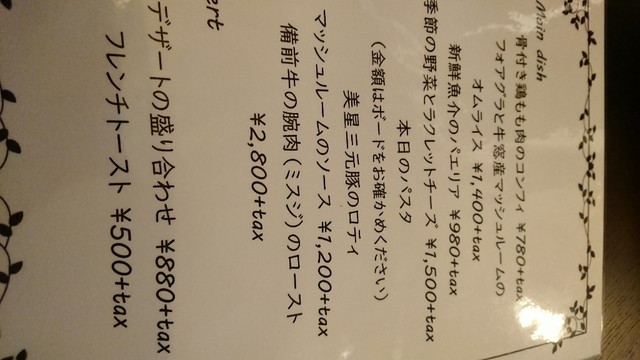 Main dish
骨付き鶏もも肉のコンフィ ¥780+tax
フォアグラと牛窓産マッシュルームの
オムライス ¥1,400+tax
新鮮魚介のパエリア ¥980+tax
季節の野菜とラクレットチーズ ¥1,500+tax
本日のパスタ
(金額はボードをお確かめください)
美星三元豚のロティ
マッシュルームのソース ¥1,200+tax
備前牛の腕肉(ミスジ)のロースト
¥2,800+tax
ert
デザートの盛り合わせ ¥880+tax
フレンチトースト ¥500+tax